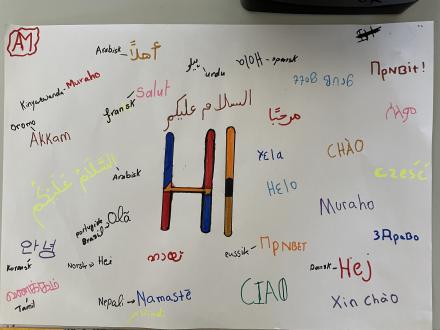 AM
Arabisk أهلاً
سلام urdu
Hola - spansk
Grüß Gott
Привіт!
Kinyarwanda - Muraho
fransk Salut
السلام عليكم
مرحبًا
Oromo
Akkam
HI
γεια
CHÀO
السَّلَامُ عَلَيْكُمْ Arabisk
Helo
cześć
portugisisk Brasil - Olá
Muraho
안녕
Koreansk
Norsk → Hei
russisk - Привет
Здраво
Dansk - Hej
வணக்கம்
Tamil
Nepali - Namaste
Hindi
CIAO
Xin chào